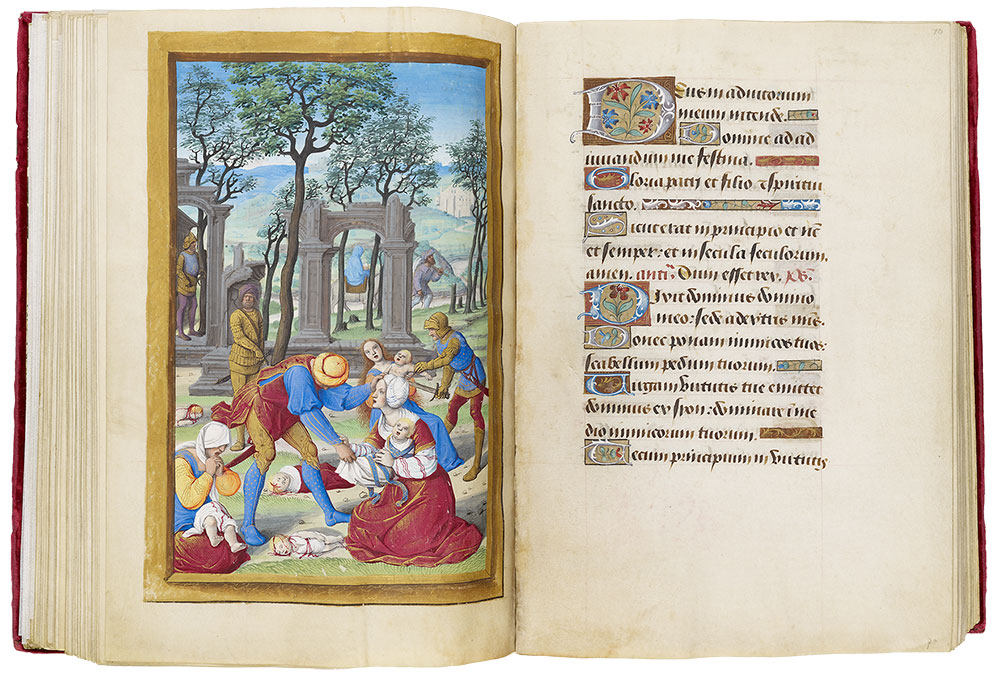 Deus in adiutorium
meum intende.
Domine ad ad
iuuandum me festina.
Gloria patri et filio et spiritui
sancto.
Sicut erat in principio et nūc
et semper: et in secula seculorum.
amen. ant. Dum esset rex. ps.
Dixit dominus domino
meo: sede a dextris meis.
Donec ponam inimicos tuos
scabellum pedum tuorum.
Virgam virtutis tue emittet
dominus ex syon: dominare ī me
dio inimicorum tuorum.
Tecum principium in virtutis